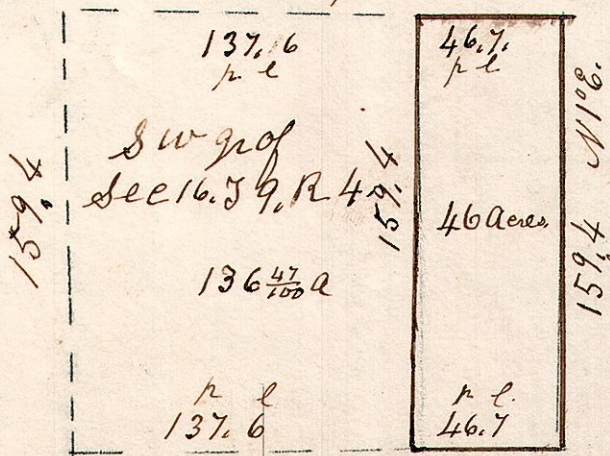 137.6
p l
46.7.
p l
159.4
S W qr of
Sec 16. T 9, R 4
159.4
46 Acres.
159.4 N1°E.
136 47/100 a
p l
137.6
p l.
46.7